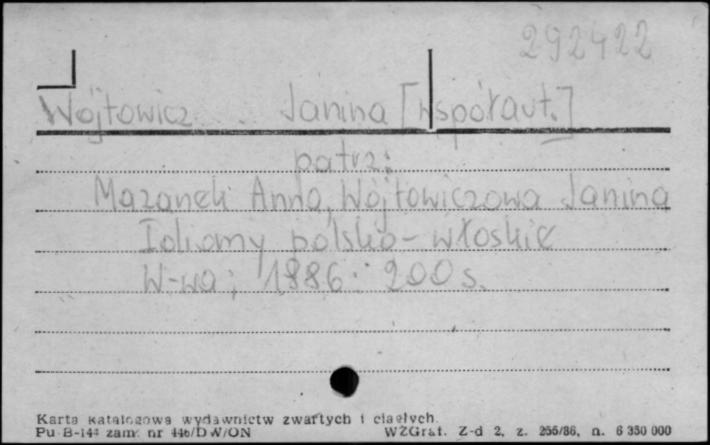 292422
Wójtowicz Janina [współaut.]
patrz:
Mazanek Anna, Wójtowiczowa Janina
Idiomy polsko-włoskie
W-wa; 1986: 200 s.
Karta katalogowa wydawnictw zwartych i ciągłych.
Pu B-144 zam. nr 446/DW/ON WZGraf. Z-d 2, z. 255/86, n. 6 350 000